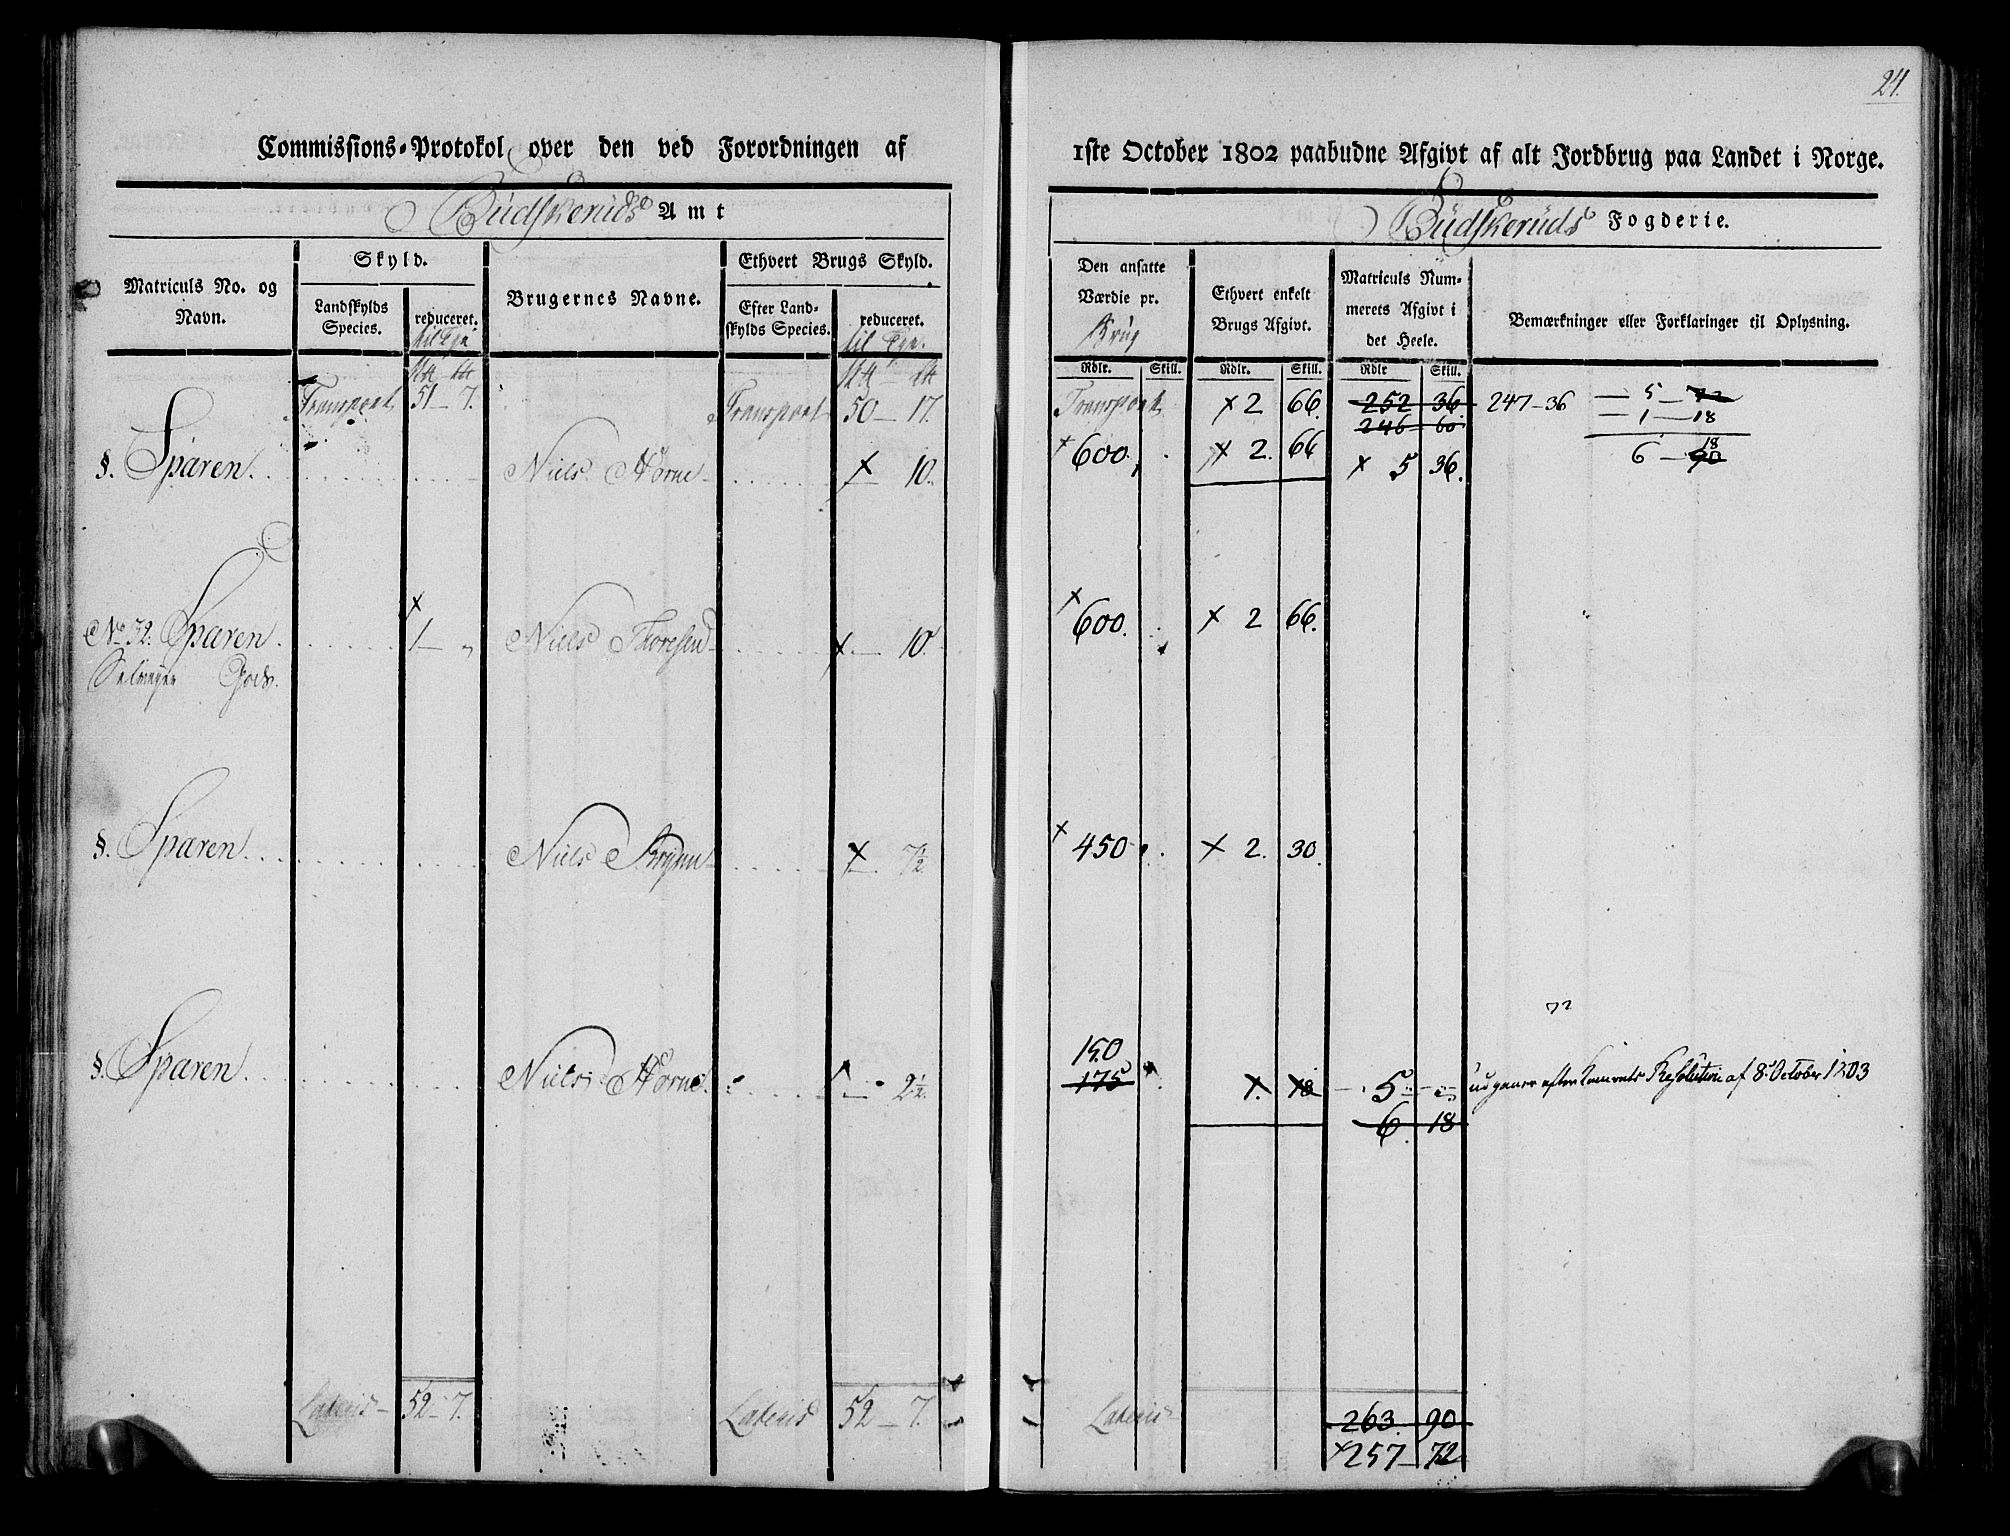 24.
Commissions-Protokol over den ved Forordningen af
1ste October 1802 paabudne Afgivt af alt Jordbrug paa Landet i Norge.
Budskeruds Amt
Budskeruds Fogderie.
Matriculs No. og Navn.
Skyld.
Landskylds Species.
reduceret.
Brugernes Navne.
Ethvert Brugs Skyld.
Efter Landskylds Species.
reduceret.
Den ansatte Værdie pr. Brug
Ethvert enkelt Brugs Afgivt.
Matriculs Nummerets Afgivt i det Heele.
Bemærkninger eller Forklaringer til Oplysning.
Rdlr. Skill. Rdlr. Skill. Rdlr Skill.
Transport 51 — 7. Transport 50 — 17. Transport × 2 66. 252 36. 247 — 36 — 5 — 72
246 60 — 1 — 18
§. Sparen. Niels Horne × 10. × 600. × 2. 66 × 5 36. 6 — 90 18
No 32. Sparen × 1 — „ Niels Thoresen × — 10. × 600. × 2 66.
Gods.
§. Sparen Niels × — 7½ × 450. × 2. 30.
72
150
§. Sparen Niels Horne. — 2½. 175 1. 18 — 5 — „ udgaaer efter Resolution af 8 October 1803
6. 18
Lateris 52 — 7. Lateris 52 — 7. Lateris 263. 90
× 257 — 72